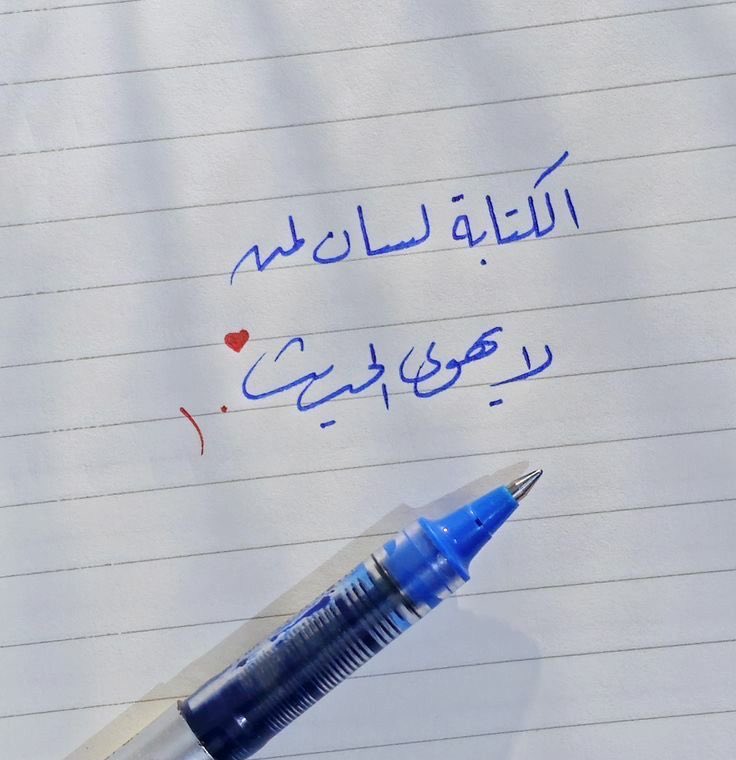 الكتابة لسان لمن
لا يهوى الحديث